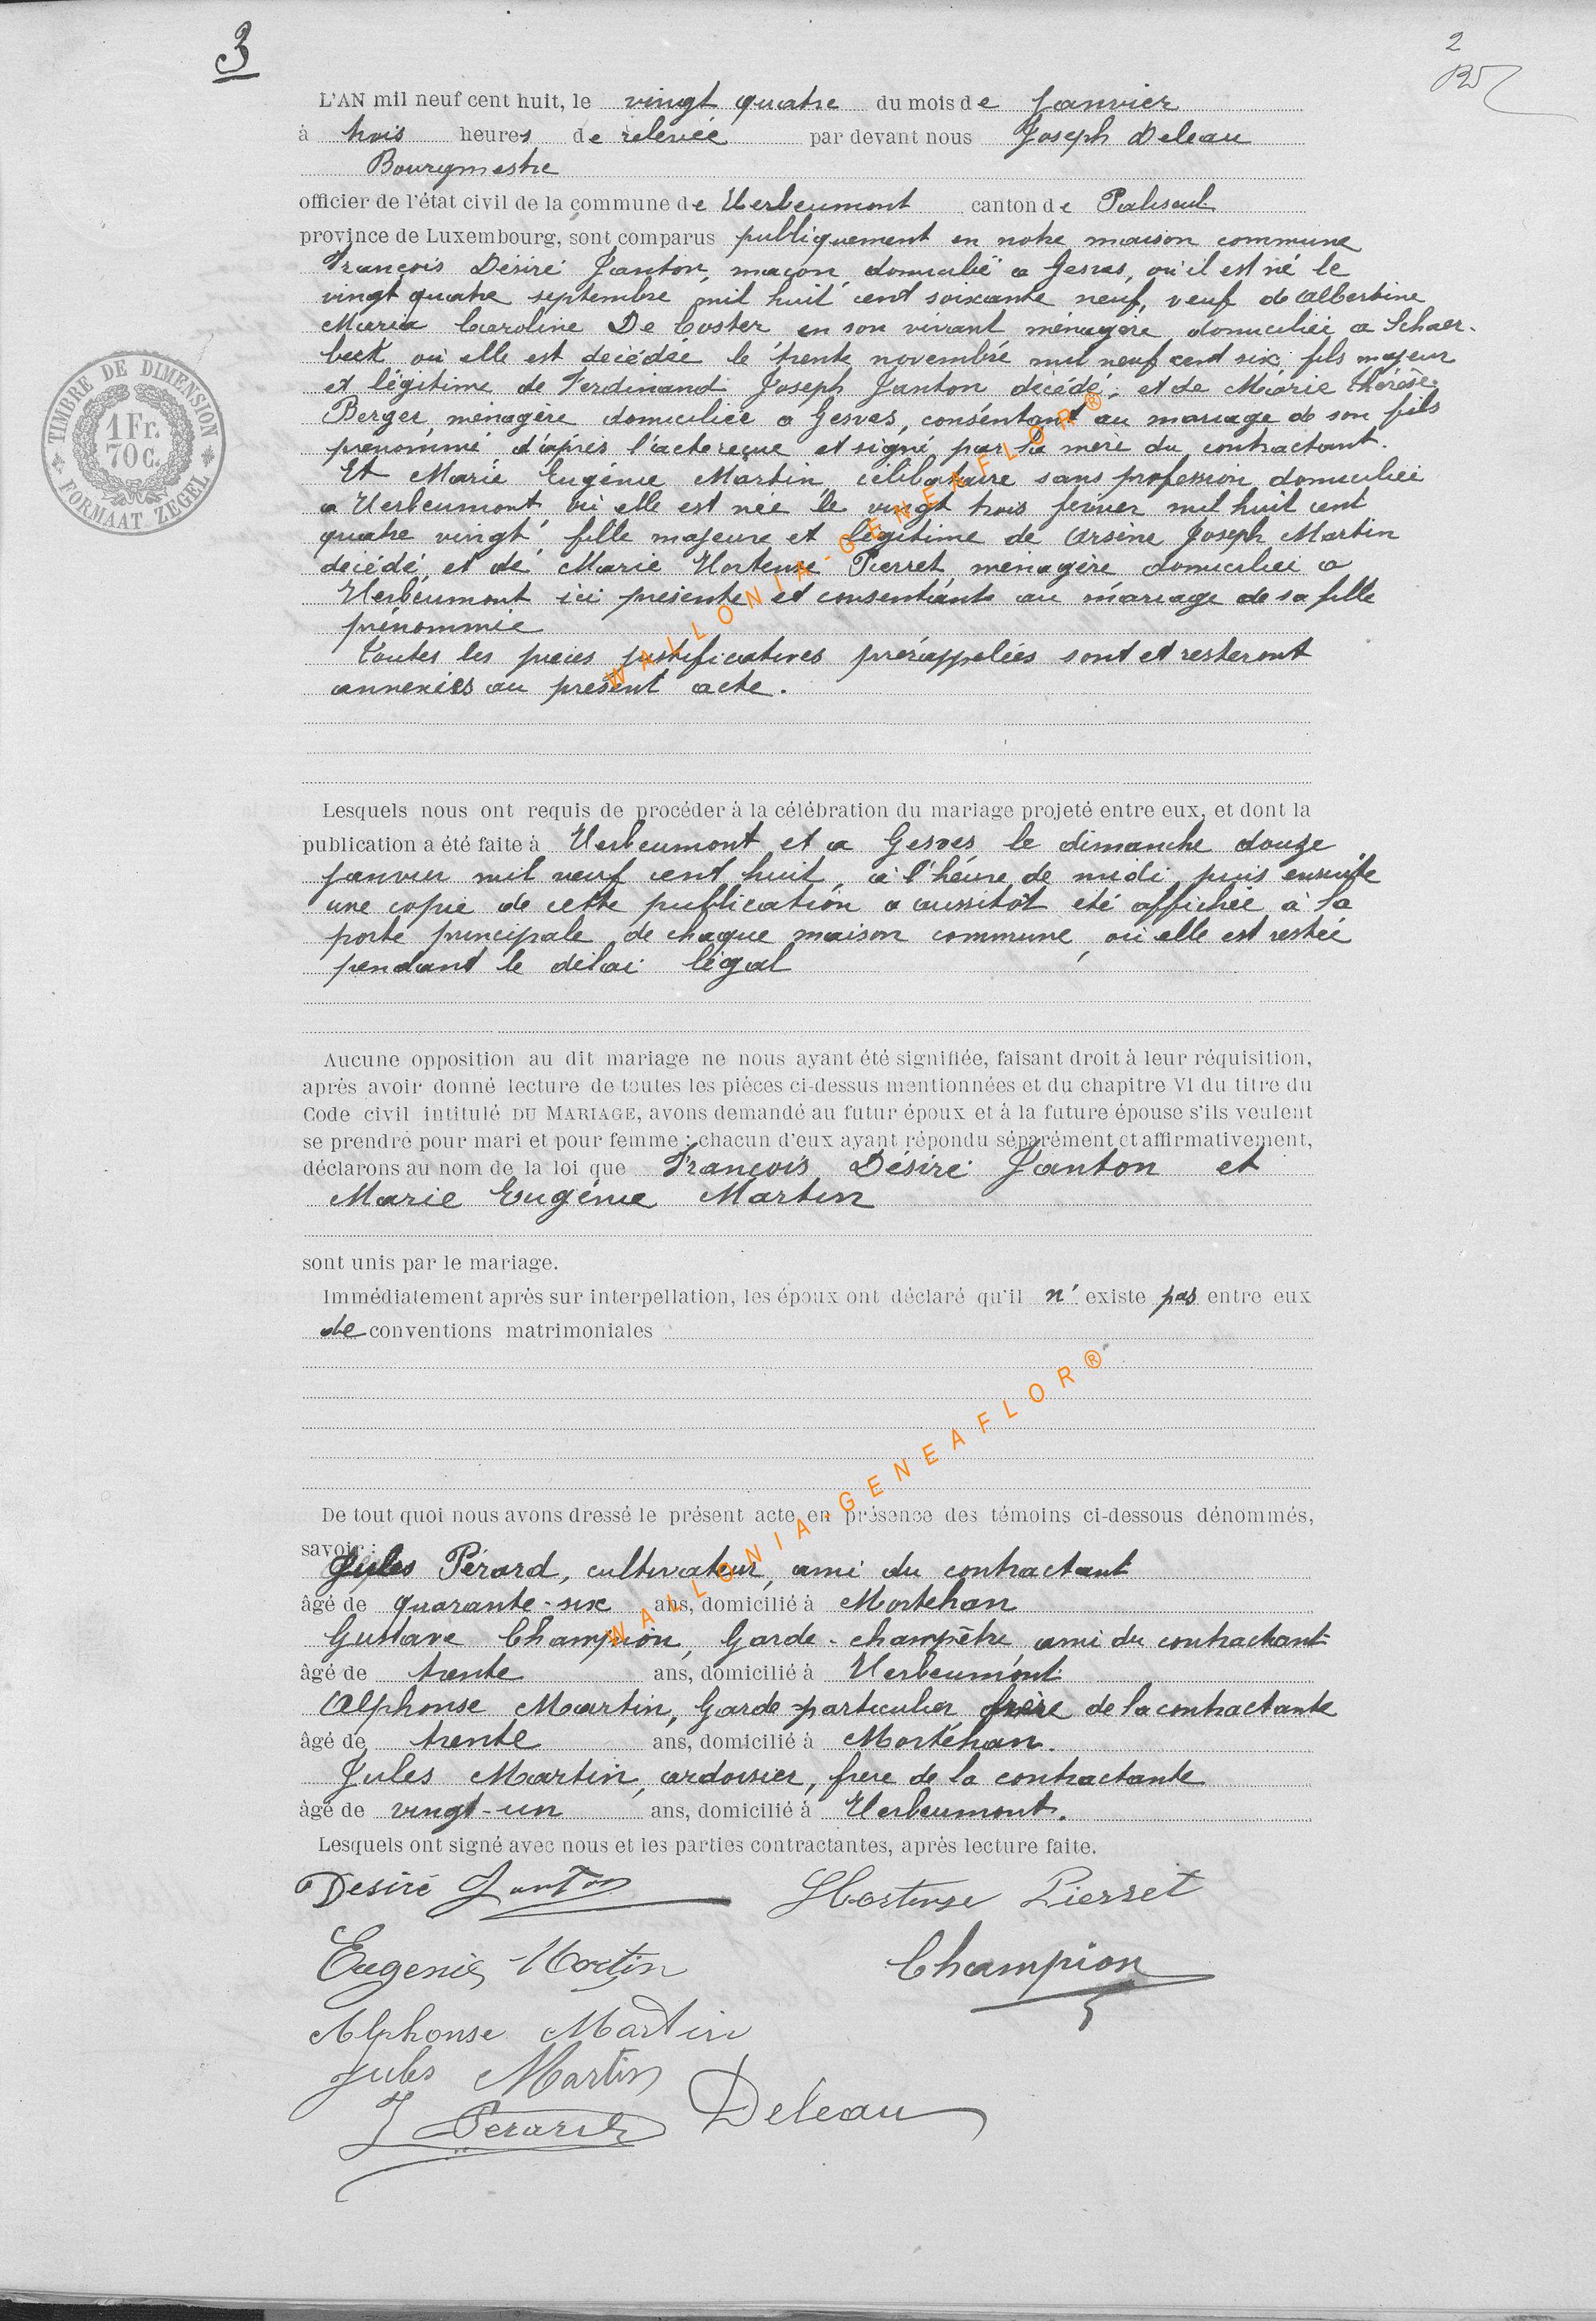 3
2
L'AN mil neuf cent huit, le vingt quatre du mois de Janvier
à trois heures de relevée par devant nous Joseph Deleau
Bourgmestre
officier de l'état civil de la commune de Herbeumont canton de Paliseul
province de Luxembourg, sont comparus publiquement en notre maison commune
François Désiré Janton, maçon, domicilié a Gesves, où il est né le
vingt quatre septembre mil huit cent soixante neuf, veuf de Albertine
Maria Caroline De Coster en son vivant ménagère domiciliée a Schaer-
beek où elle est décédée le trente novembre mil neuf cent six, fils majeur
et légitime de Ferdinand Joseph Janton décédé, et de Marie Thérèse
Berger, ménagère domiciliée a Gesves, consentant au mariage de son fils
prénommé d'après l'acte reçue et signé par la mère du contractant.
Et Marie Eugénie Martin, célibataire sans profession domiciliée
a Herbeumont où elle est née le vingt trois février mil huit cent
quatre vingt, fille majeure et légitime de Arsène Joseph Martin
décédé, et de Marie Hortense Pierret ménagère domiciliée a
Herbeumont ici présente et consentante au mariage de sa fille
prénommée
Toutes les pièces justificatives prérappelées sont et resteront
annexées au présent acte.
Lesquels nous ont requis de procéder à la célébration du mariage projeté entre eux, et dont la
publication a été faite à Herbeumont et a Gesves le dimanche douze
Janvier mil neuf cent huit, à l'heure de midi, puis ensuite
une copie de cette publication a aussitôt été affichée à la
porte principale de chaque maison commune, où elle est restée
pendant le délai légal
Aucune opposition au dit mariage ne nous ayant été signifiée, faisant droit à leur réquisition,
après avoir donné lecture de toutes les pièces ci-dessus mentionnées et du chapitre VI du titre du
Code civil intitulé DU MARIAGE, avons demandé au futur époux et à la future épouse s'ils veulent
se prendre pour mari et pour femme ; chacun d'eux ayant répondu séparément et affirmativement,
déclarons au nom de la loi que François Désiré Janton et
Marie Eugénie Martin
sont unis par le mariage.
Immédiatement après sur interpellation, les époux ont déclaré qu'il n' existe pas entre eux
de conventions matrimoniales
De tout quoi nous avons dressé le présent acte en présence des témoins ci-dessous dénommés,
savoir :
Jules Pérard, cultivateur, ami du contractant
âgé de quarante-six ans, domicilié à Mortehan
Gustave Champion, Garde-champêtre ami du contractant
âgé de trente ans, domicilié à Herbeumont
Alphonse Martin, Garde-particulier frère de la contractante
âgé de trente ans, domicilié à Mortehan.
Jules Martin, ardoisier, frère de la contractante
âgé de vingt-un ans, domicilié à Herbeumont.
Lesquels ont signé avec nous et les parties contractantes, après lecture faite.
Desiré Janton Hortense Pierret
Eugenie Martin Champion
Alphonse Martin
Jules Martin
J Perard Deleau
TIMBRE DE DIMENSION
1 Fr.
70 c.
FORMAAT ZEGEL
WALLONIA-GENEAFLOR®
WALLONIA-GENEAFLOR®